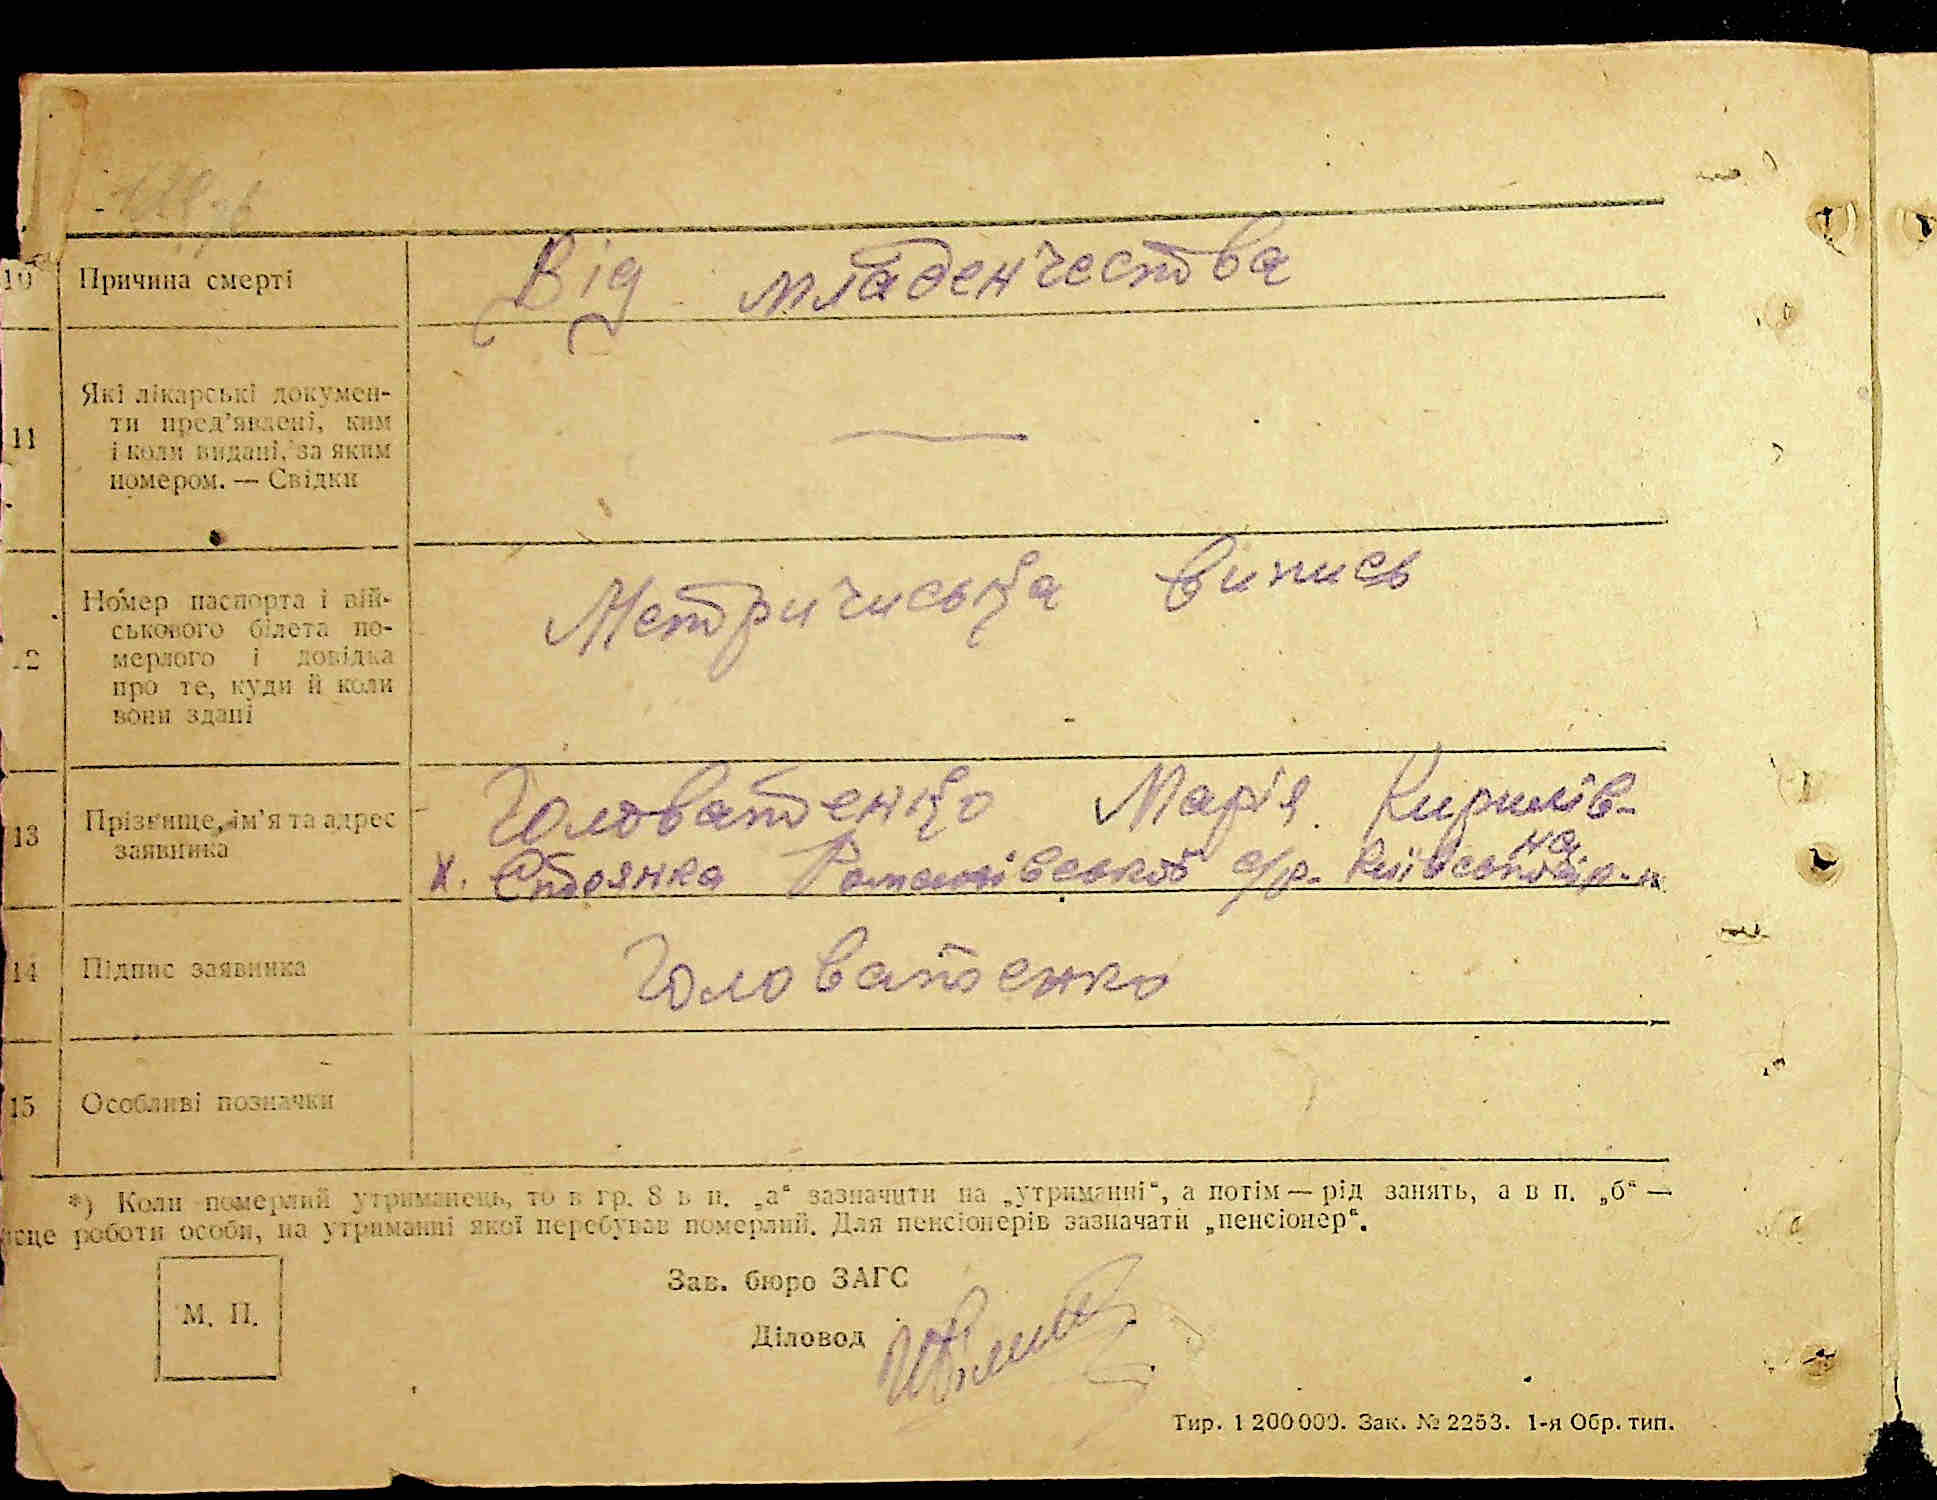 10 Причина смерті Від младенчества
11 Які лікарські докумен-
ти пред’явлені, ким
і коли видані, за яким
номером. — Свідки
12 Номер паспорта і вій-
ськового білета по-
мерлого і довідка
про те, куди й коли
вони здані
Метричиська випись
13 Прізвище, ім’я та адрес
заявника
Головатенко Марія Кирилів-
на
х. Стоянка Романівської с/р. Київської р-н
14 Підпис заявника Головатенко
15 Особливі позначки
*) Коли померлий утриманець, то в гр. 8 в п. „а“ зазначити на „утриманні“, а потім — рід занять, а в п. „б“ —
місце роботи особи, на утриманні якої перебував померлий. Для пенсіонерів зазначати „пенсіонер“.
М. П.
Зав. бюро ЗАГС
Діловод
Тир. 1 200 000. Зак. № 2253. 1-я Обр. тип.